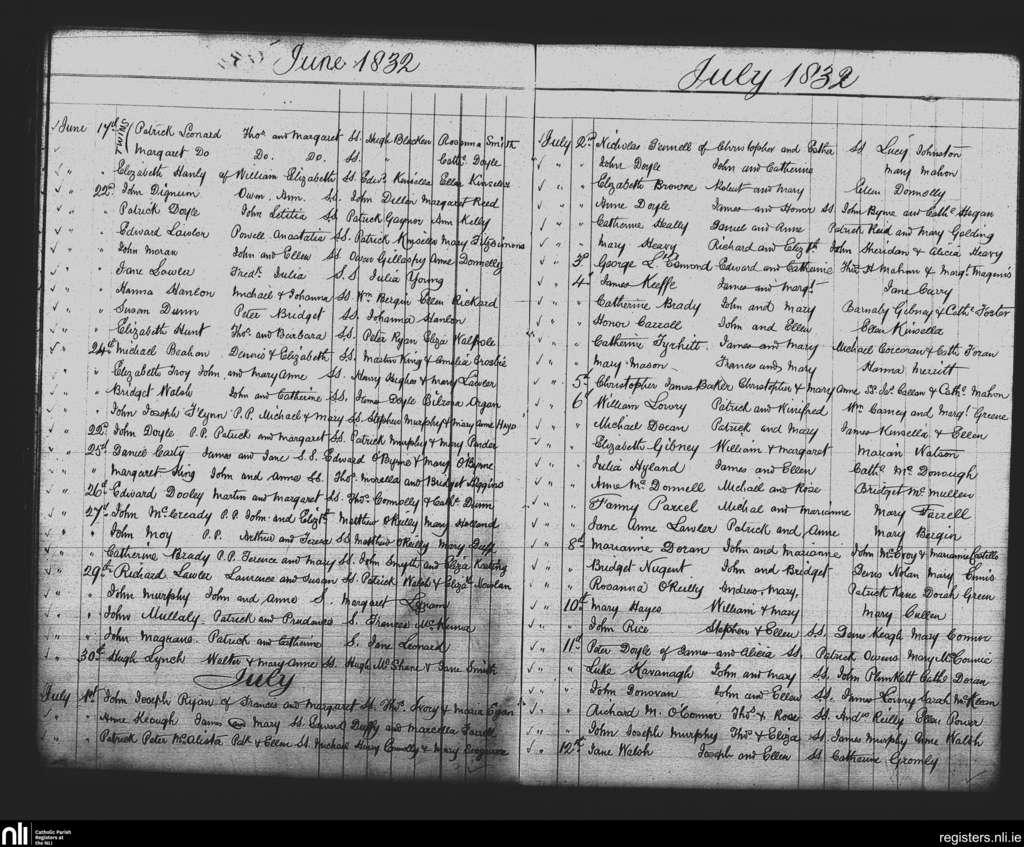 June 1832
June 17th TWINS Patrick Leonard Thos and Margaret Ss. Hugh Bracken Rosanna Smith
" Margaret Do Do. Do. Ss. " Cathe. Doyle
" " Elizabeth Hanly of William Elizabeth Ss. Edwd Kinsella Ellen Kinsella
" 22d John Dignum Owen. Ann. Ss. John Dillon Margaret Reed
" " Patrick Doyle John Letitia Ss Patrick Gaynor Ann Kelly
" " Edward Lawlor Powell Anastatia Ss. Patrick Kinsella Mary Fitzsimons
" " John Moran John and Ellen Ss Owen Gellaspy Anne Donnelly
" " Jane Lawler Fredk. Julia S.S Julia Young
" " Hanna Hanlon Michael & Johanna Ss. Wm Bergin Ellen Rickard
" " Susan Dunn Peter Bridget Ss. Johanna Hanlon
" " Elizabeth Hunt Thos. and Barbara Ss. Peter Ryan Eliza Walpole
" 24th Michael Beahan Dennis & Elizabeth Ss. Martin King & Amelia Crosbie
" " Elizabeth Troy John and Mary Anne Ss. Henry Hughes & Mary Lawler
" " Bridget Walsh John and Catherine Ss. James Doyle Organ
" " John Joseph Flynn P.P. Michael & Mary Ss. Stephen Murphy & Mary Anne Hayo
" 22d John Doyle P.P. Patrick and Margaret Ss. Patrick Murphy & Mary
" 25th Daniel Casty James and Jane S.S. Edward O'Byrne & Mary O'Byrne
" " Margaret King John and Anne Ss. Thos. and Bridget Higgins
" 26th Edward Dooley Martin and Margaret Ss. Thos. Connolly & Cathe. Dunn
" 27th John McCready P.P. John and Elizth Matthew O'Reilly Mary Holland
" " John Moy P.P. Arthur and Teresa Ss Matthew O'Reilly Mary Duff
" " Catherine Brady P.P. Terence and Mary Ss. John Smyth and Eliza Keating
" 29th Richard Lawler Laurence and Susan Ss. Patrick Welsh & Elizth. Nowlan
" " John Murphy John and Anne S. Margaret Lynam
" " John Mullaly. Patrick and Prudence S. Frances McKenna
" " John Magrane. Patrick and Catherine S. Jane Leonard
" 30th Hugh Lynch Walter & Mary Anne Ss. Hugh McShane & Jane Smith
July
July 1st John Joseph Ryan of Frances and Margaret Ss. Thos. Ivory & Maria Egan
" " Anne Keough James and Mary Ss. Edward Duffy and Marcella Farrell
" " Patrick Peter McAlister Patk & Ellen Ss. Michael Henry Connolly & Mary
July 1832
July 2d Nicholas Fennell of Christopher and Cathe Ss Lucy Johnston
" " John Doyle John and Catherine Mary Mahon
" " Elizabeth Browne Robert and Mary Ellen Donnelly
" " Anne Doyle James and Honor Ss John Byrne and Cathe. Hagan
" " Catherine Healy Daniel and Anne Patrick Reid and Mary Golding
" " Mary Heavy Richard and Elizth. John Sheridan & Alicia Heavy
" 3d George L. Esmond Edward and Catherine Thos. H Mahon & Margt. Magenis
" 4th James Keeffe James and Margt. Jane Curry
" " Catherine Brady John and Mary Barnaby Gibney & Cathe. Foster
" " Honor Carroll John and Ellen Ellen Kinsella
" " Catherine Tyrhitt. James and Mary Michael Corcoran & Cath. Foran
" " Mary Mason. Frances and Mary Hanna Merritt
" 5th Christopher James Baker Christopher & Mary Anne Ss. Jas. Callan & Cathe. Mahon
" 6th William Lowry Patrick and Winifred Wm. Carney and Margt. Greene
" " Michael Doran Patrick and Mary James Kinsella & Ellen
" " Elizabeth Gibney William & Margaret Marian Watson
" " Julia Hyland James and Ellen Cathe. McDonough
" " Anne McDonnell Michael and Rose Bridget McMullen
" " Fanny Parcel Michael and Marianne Mary Farrell
" " Jane Anne Lawler Patrick and Anne Mary Bergin
" 8th Marianne Doran John and Marianne John McEvoy & Marianne Castillo
" " Bridget Nugent John and Bridget Denis Nolan Mary Ennis
" " Rosanna O'Reilly Andrew, Mary, Patrick Kane Dorah Green
" 10th Mary Hayes William & Mary Mary Cullen
" " John Rice Stephen & Ellen Ss. Dani Keagh Mary Connor
" 11th Peter Doyle of James and Alicia Ss. Patrick Owens Mary McConnie
" " Luke Kavanagh John and Mary Ss. John Plunkett Cathe Doran
" " John Donovan John and Ellen Ss. James Lowry Sarah McKeon
" " Richard M. O'Connor Thos & Rose Ss. Andw Reilly Ellen Power
" " John Joseph Murphy Thos & Eliza Ss. James Murphy Anne Walsh
" 12th Jane Walsh Joseph and Ellen Ss Catherine Gromly
nli
Catholic Parish
Registers at
the NLI
registers.nli.ie